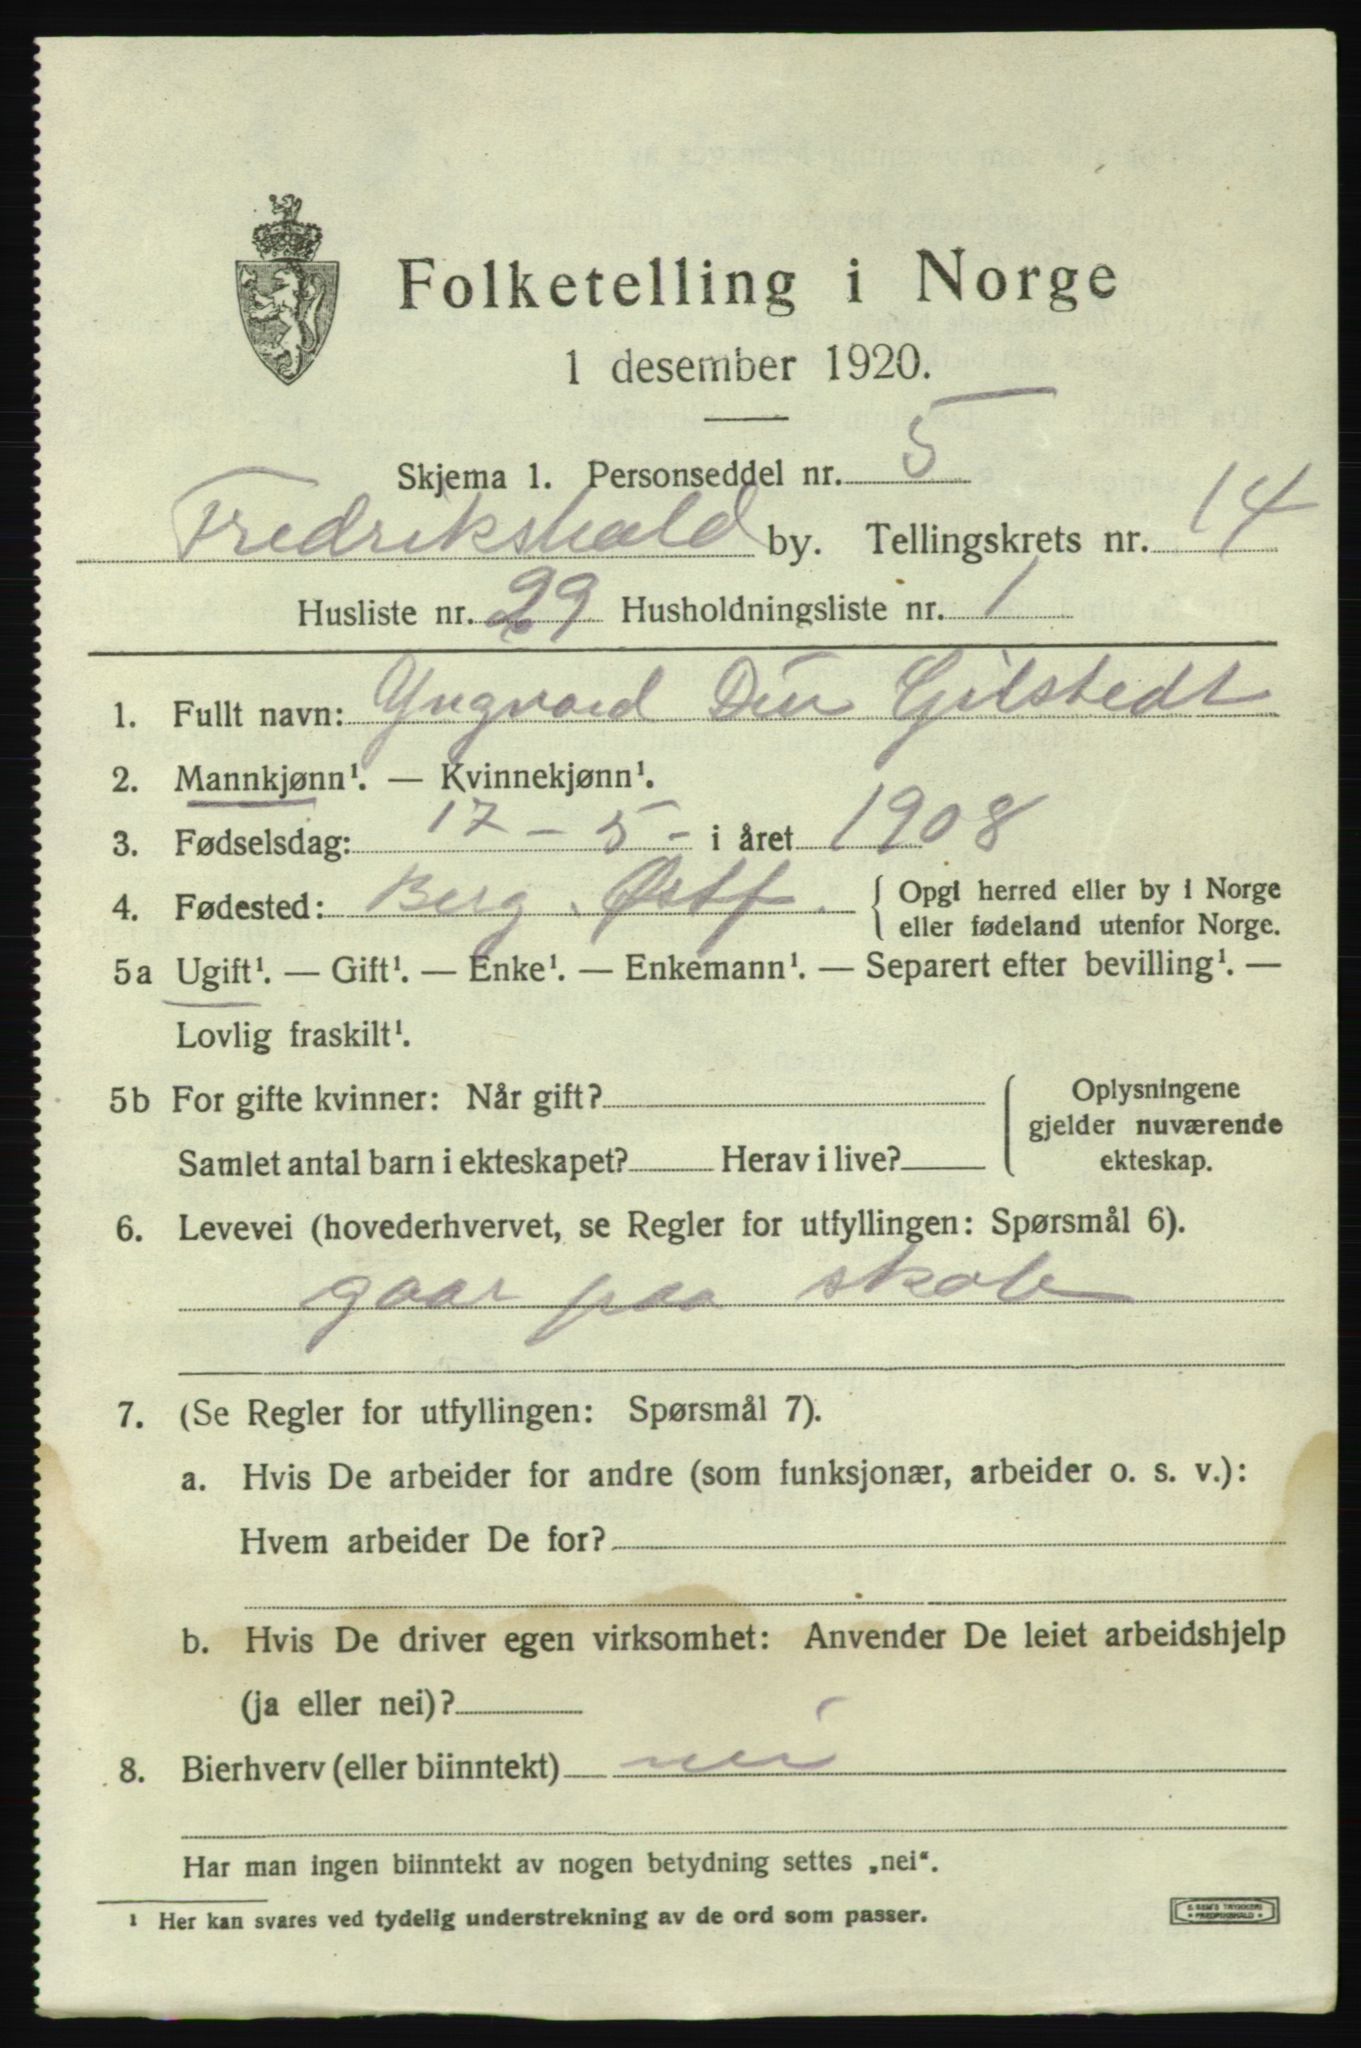 Folketelling i Norge
1 desember 1920.
Skjema 1. Personseddel nr. 5
Fredrikshald by. Tellingskrets nr. 14
Husliste nr. 29 Husholdningsliste nr. 1
1. Fullt navn: Yngvard Gilstedt
2. Mannkjønn¹. — Kvinnekjønn¹.
3. Fødselsdag: 17 - 5 - i året 1908
4. Fødested: Berg. Østf. { Opgi herred eller by i Norge
eller fødeland utenfor Norge.
5a Ugift¹. — Gift¹. — Enke¹. — Enkemann¹. — Separert efter bevilling¹. —
Lovlig fraskilt¹.
5b For gifte kvinner: Når gift? Oplysningene
gjelder nuværende
Samlet antal barn i ekteskapet? Herav i live? ekteskap.
6. Levevei (hovederhvervet, se Regler for utfyllingen: Spørsmål 6).
gaar paa skole
7. (Se Regler for utfyllingen: Spørsmål 7).
a. Hvis De arbeider for andre (som funksjonær, arbeider o. s. v.):
Hvem arbeider De for?
b. Hvis De driver egen virksomhet: Anvender De leiet arbeidshjelp
(ja eller nei)?
8. Bierhverv (eller biinntekt) nei
Har man ingen biinntekt av nogen betydning settes „nei“.
¹ Her kan svares ved tydelig understrekning av de ord som passer.
E. SEM'S TRYKKERI
• FREDRIKSHALD •